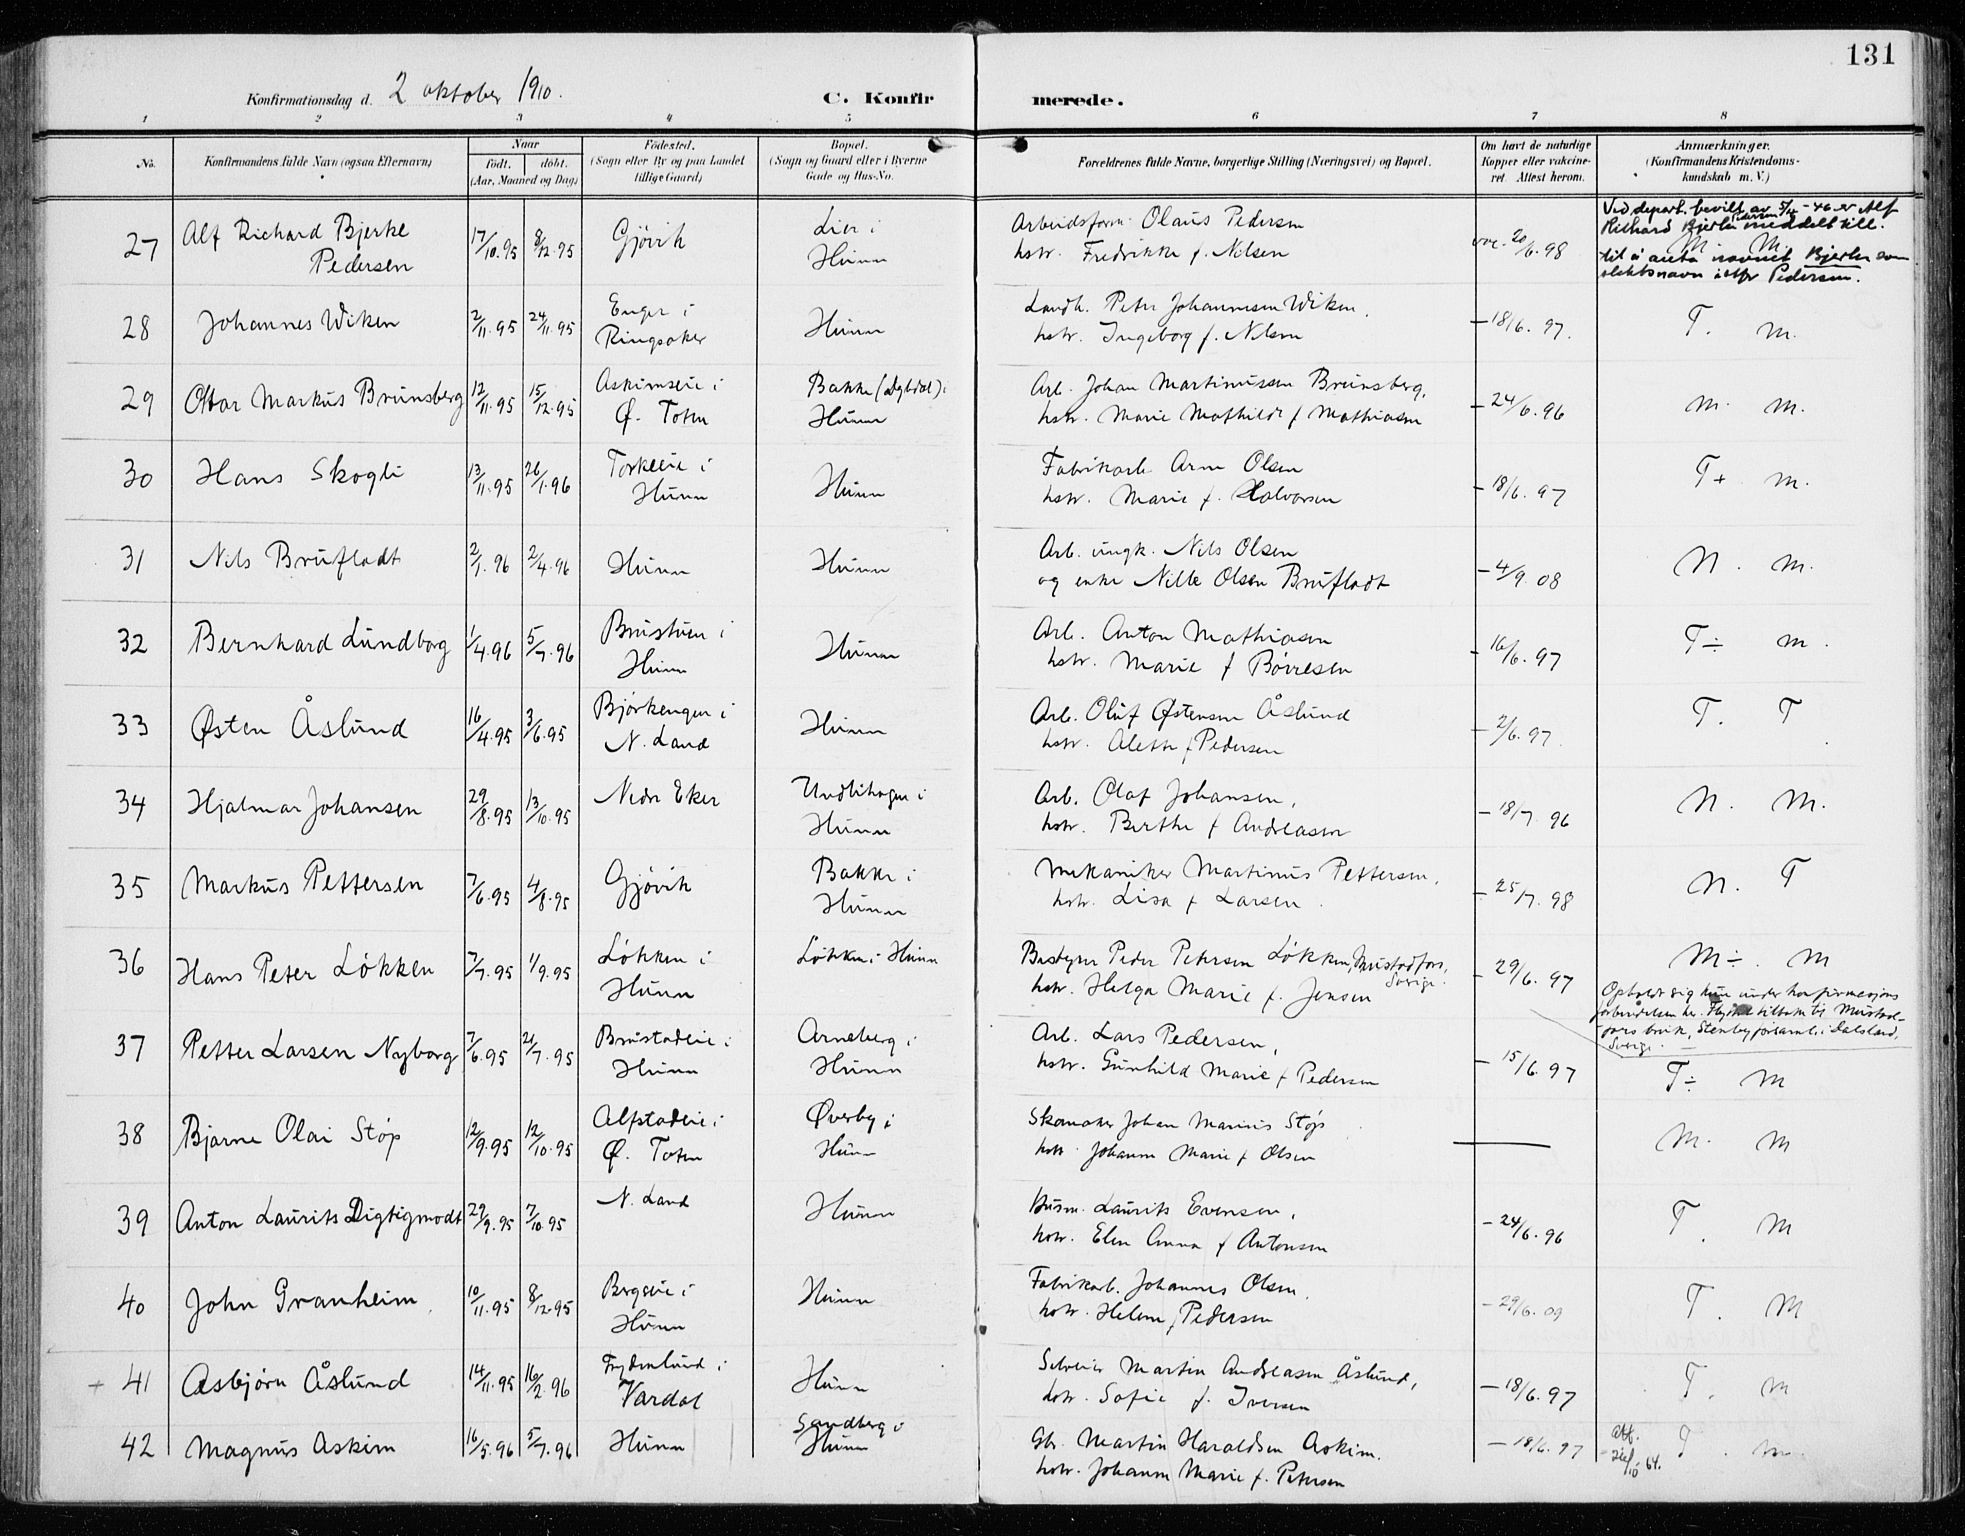 131
Konfirmationsdag d. 2 oktober 1910.
C. Konfirmerede.
1 2 3 4 5 6 7 8
No. Konfirmandens fulde Navn (ogsaa Efternavn) Naar født. døbt. (Aar, Maaned og Dag) Fødested. (Sogn eller By og paa Landet tillige Gaard) Bopæl. (Sogn og Gaard eller i Byerne Gade og Hus-No. Forældrenes fulde Navne, borgerlige Stilling (Næringsvei) og Bopæl. Om havt de naturlige Kopper eller vakcineret. Attest herom. Anmærkninger. (Konfirmandens Kristendomskundskab m. V.)
27 Alf Richard Bjerke Pedersen 17/10.95 8/12.95 Gjøvik Lier i Hunn Arbeidsform. Olaus Pedersen
hstr. Fredrikke f. Nilsen vac. 20/6.98 M. M.
Ved depart. bevilt. av 5/12-46 er Alf
Richard Bjerke Pedersen meddelt till.
til å anta navnet Bjerke som
slektsnavn istfr Pedersen.
28 Johannes Wiken 2/11.95 24/11.95 Enger i Ringsaker Hunn Landh. Peter Johannesen Wiken,
hstr. Ingeborg f. Nilsen - 18/6.97. T. m.
29 Ottar Markus Brunsberg 12/11.95 15/12.95 Askimseie i Ø. Toten Bakke (Dybdal) i Hunn Arb. Johan Martinussen Brunsberg,
hstr. Marie Mathilde f Mathiasen - 24/6.96 m. m.
30 Hans Skogli 13/11.95 26/1.96 Torkeie i Hunn Hunn Fabrikarb. Arne Olsen
hstr. Marie f. Halvorsen - 18/6.97 T+ m.
31 Nils Brufladt 2/1.96 2/4.96 Hunn Hunn Arb. ungk. Nils Olsen
og enke Nille Olsen Brufladt - 4/9.08 N. m.
32 Bernhard Lundborg 1/4.96 5/7.96 Brustuen i Hunn Hunn Arb. Anton Mathiasen
hstr. Marie f Børresen - 16/6.97 T÷ m.
33 Østen Åslund 16/4.95 3/6.95 Bjørkengen i N. Land Hunn Arb. Oluf Østensen Åslund
hstr. Alette f Pedersen - 2/6.97. T. T
34 Hjalmar Johansen 29/8.95 13/10.95 Nedre Eker Undlihagen i Hunn Arb. Olaf Johansen,
hstr. Berthe f Andreasen - 18/7.96 N. M.
35 Markus Pettersen 7/6.95 4/8.95 Gjøvik Bakke i Hunn Mekaniker Martinus Pettersen,
hstr. Lisa f Larsen. - 25/7.98 N. T
36 Hans Peter Løkken 7/7.95 1/9.95 Løkken i Hunn Løkken i Hunn Bestyrer Peder Petersen Løkken, Mustadfors, Sverige.
hstr. Helga Marie f. Jensen - 29/6.97 M÷. M
Opholdt sig kun under konfirmasjons
forberedelsen her. Flyttet tilbake til Mustad-
fors bruk, Stenbyförsaml. i Dalsland,
Sverige.
37 Petter Larsen Nyborg 7/6.95 21/7.95 Brustadeie i Hunn Arneberg i Hunn Arb. Lars Pedersen,
hstr. Gunhild Marie f Pedersen - 15/6.97 T÷ M
38 Bjarne Olai Støp 12/9.95 12/10.95 Alfstadeie i Ø. Toten Øverby i Hunn Skomaker Johan Marius Støp
hstr. Johanne Marie f Olsen — M. M
39 Anton Laurits Digtigmodt 29/9.95 7/10.95 N. Land Hunn Husm. Laurits Evensen,
hstr. Elen Anna f Antonsen - 24/6.96 T. M
40 John Granheim. 10/11.95 8/12.95 Bergseie i Hunn Hunn Fabrikarb. Johannes Olsen,
hstr. Helene f Pedersen - 29/6.09 T. M
+ 41 Asbjørn Åslund 14/11.95 16/2.96 Frydenlund i Vardal Hunn Selveier Martin Andreasen Åslund,
hstr. Sofie f. Iversen - 18/6.97 T. m
42 Magnus Askim 16/5.96 5/7.96 Hunn Sandberg i Hunn Gbr. Martin Haraldsen Askim.
hstr. Johanne Marie f. Petersen - 18/6.97 T. m.
Att.
64.